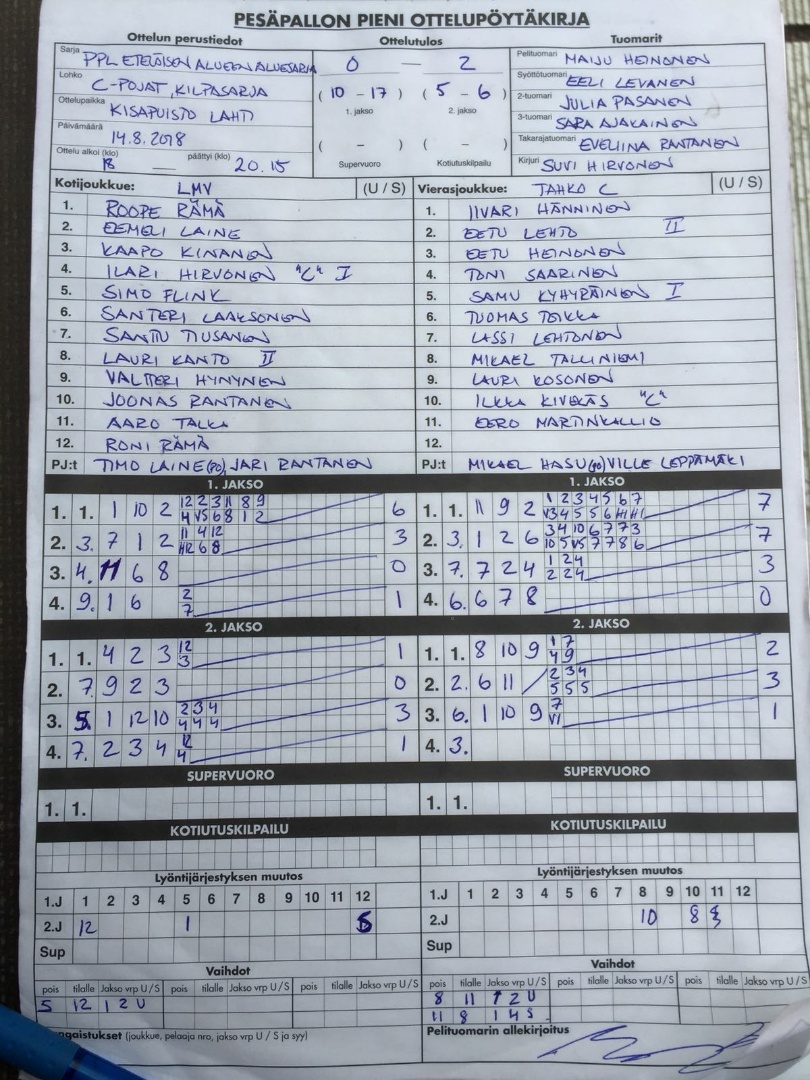 PESÄPALLON PIENI OTTELUPÖYTÄKIRJA
Ottelun perustiedot Ottelutulos Tuomarit
Sarja PPL ETELÄISEN ALUEEN ALUESARJA
Lohko C-POJAT, KILPASARJA
Ottelupaikka KISAPUISTO LAHTI
Päivämäärä 14.8.2018
Ottelu alkoi (klo) 18 — päättyi (klo) 20.15
0 — 2
( 10 - 17 ) ( 5 - 6 )
1. jakso 2. jakso
( - ) ( - )
Supervuoro Kotiutuskilpailu
Pelituomari MAIJU HEINONEN
Syöttötuomari EELI LEVANEN
2-tuomari JULIA PASANEN
3-tuomari SARA AJAKAINEN
Takarajatuomari EVELIINA RANTANEN
Kirjuri SUVI HIRVONEN
Kotijoukkue: LMV (U / S)
1. ROOPE RÄMÄ
2. EEMELI LAINE
3. KAAPO KINANEN
4. ILARI HIRVONEN "C" I
5. SIMO FLINK
6. SANTERI LAAKSONEN
7. SANTTU TIUSANEN
8. LAURI KANTO II
9. VALTTERI HYNYNEN
10. JOONAS RANTANEN
11. AARO TALKA
12. RONI RÄMÄ
PJ:t TIMO LAINE (PO), JARI RANTANEN
Vierasjoukkue: TAHKO C (U / S)
1. IIVARI HÄNNINEN
2. EETU LEHTO II
3. EETU HEINONEN
4. TONI SAARINEN
5. SAMU KYHYRÄINEN I
6. TUOMAS TOIKKA
7. LASSI LEHTONEN
8. MIKAEL TALLINIEMI
9. LAURI KOSONEN
10. ILKKA KIVEKÄS "C"
11. EERO MARTINKALLIO
12.
PJ:t MIKAEL HASU (PO) VILLE LEPPÄMÄKI
1. JAKSO
1. 1. 1 10 2 12 2 3 11 8 9 6
4 V5 6 8 1 2
2. 3. 7 1 2 11 4 12 3
6 8
3. 4. 11 6 8 0
4. 9. 1 6 2 1
7
1. JAKSO
1. 1. 11 9 2 1 2 3 4 5 6 7 7
V3 4 5 5 6
2. 3. 1 2 6 3 4 10 6 7 7 3 7
10 5 V5 7 7 8 6
3. 7. 7 2 4 1 2 4 3
2 2 4
4. 6. 6 7 8 0
2. JAKSO
1. 1. 4 2 3 12 1
3
2. 7. 9 2 3 0
3. 5. 1 12 10 2 3 4 3
4 4 4
4. 7. 2 3 4 12 1
4
2. JAKSO
1. 1. 8 10 9 1 7 2
4 9
2. 2. 6 11 / 2 3 4 3
5 5 5
3. 6. 1 10 9 7 1
V1
4. 3.
SUPERVUORO
1. 1.
SUPERVUORO
1. 1.
KOTIUTUSKILPAILU
KOTIUTUSKILPAILU
Lyöntijärjestyksen muutos
1.J 1 2 3 4 5 6 7 8 9 10 11 12
2.J 12 1 5
Sup
Lyöntijärjestyksen muutos
1.J 1 2 3 4 5 6 7 8 9 10 11 12
2.J 10 8
Sup
Vaihdot
pois tilalle Jakso vrp U / S pois tilalle Jakso vrp U / S pois tilalle Jakso vrp U / S
5 12 1 2 U
Vaihdot
pois tilalle Jakso vrp U / S pois tilalle Jakso vrp U / S pois tilalle Jakso vrp U / S
8 11 1 2 U
11 8 1 4 S
(joukkue, pelaaja nro, jakso vrp U / S ja syy)
Pelituomarin allekirjoitus